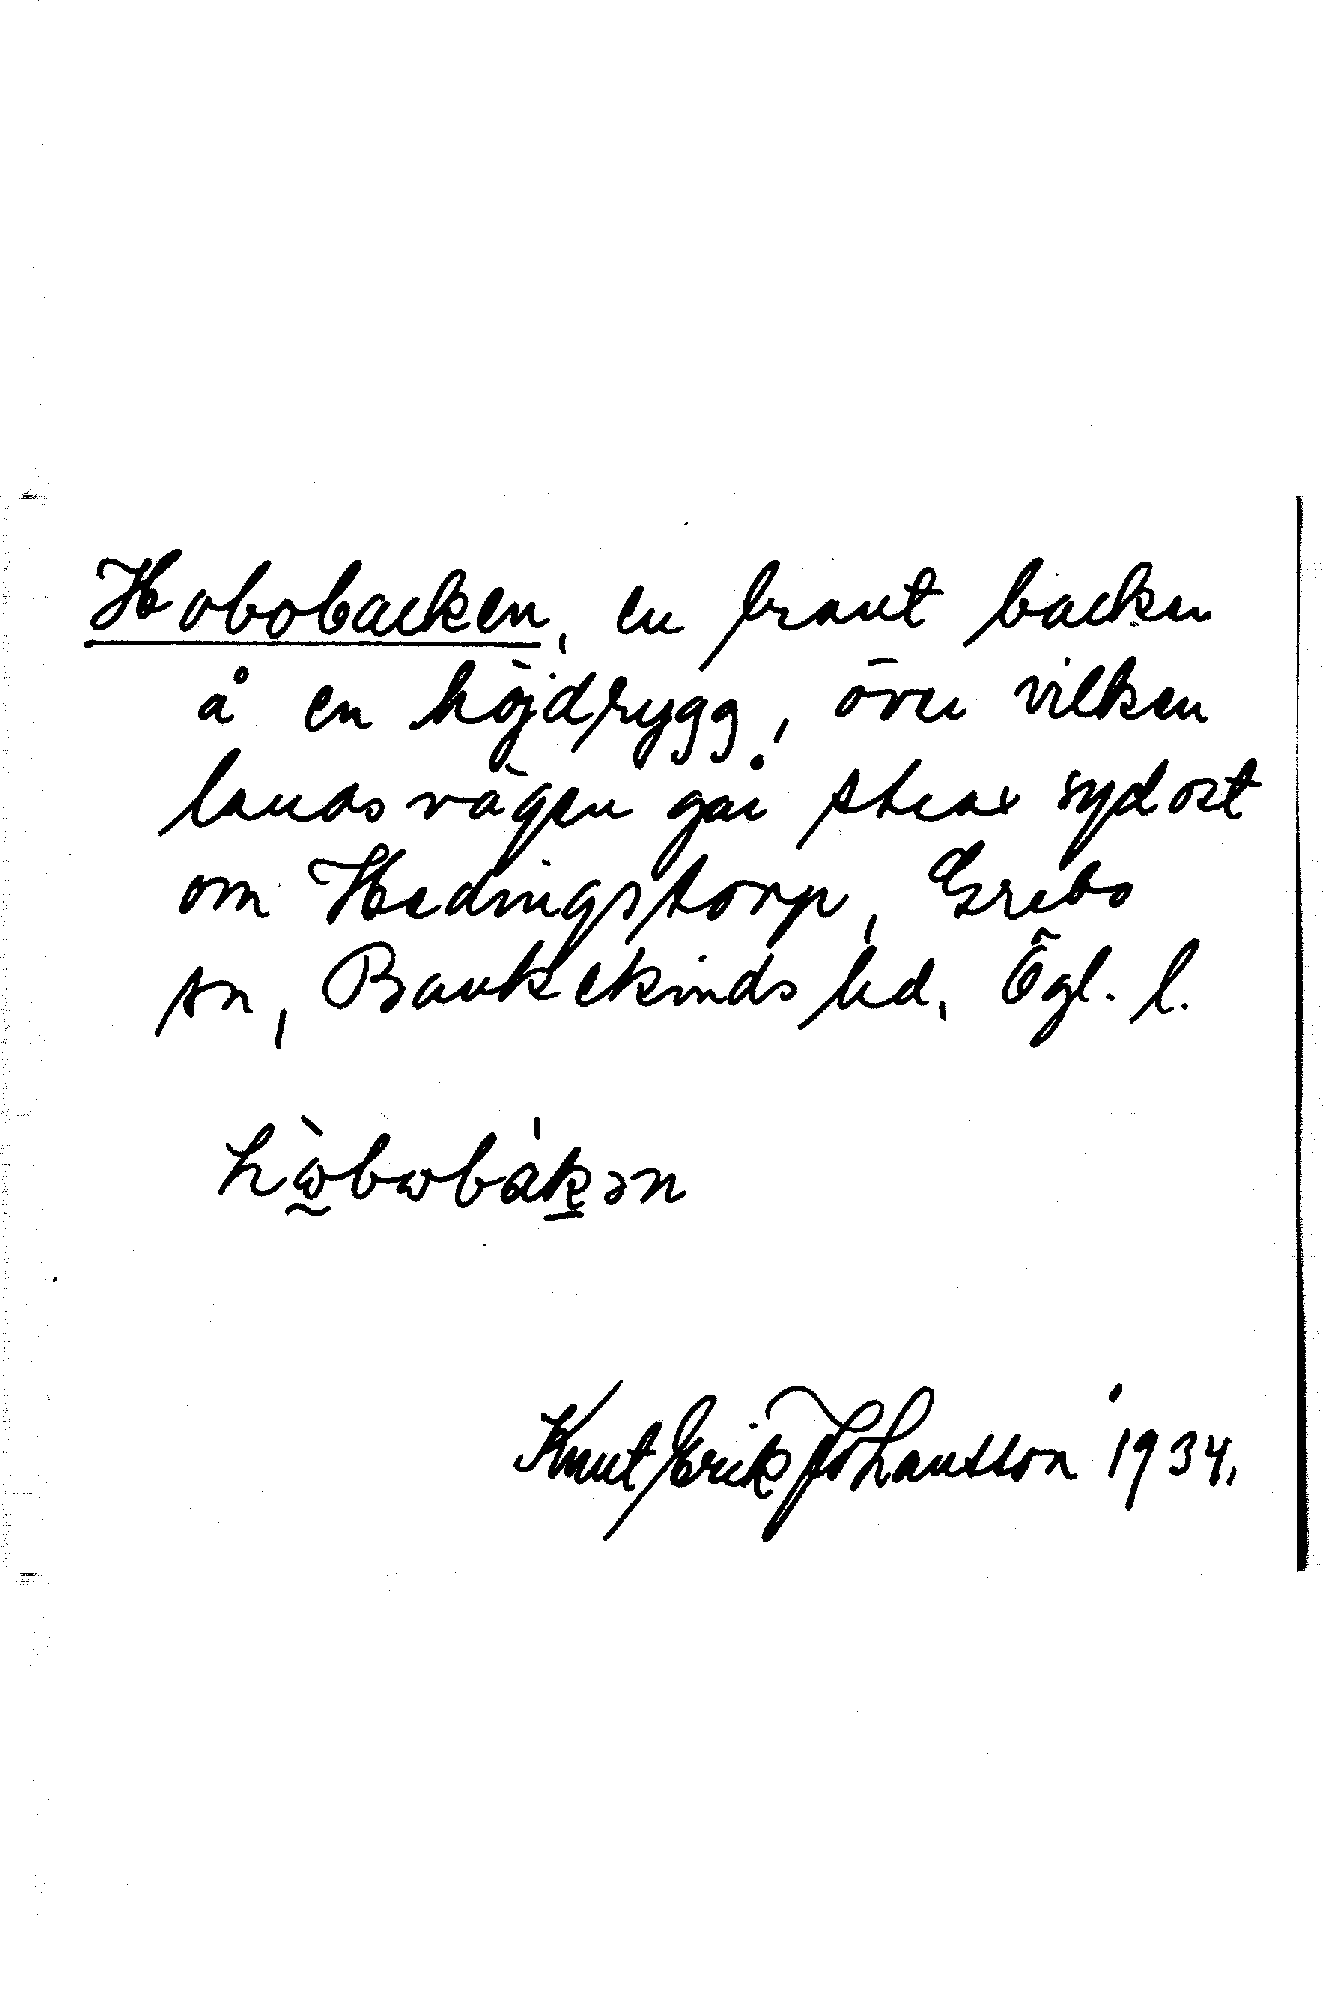 Hobobacken, en brant backen
å en höjdrygg, över vilken
landsvägen går strax sydost
om Hedingstorp, Grebo
sn, Bankekinds hd, Ögl. l.
hὼbωbákən
Knut Erik Johansson 1934.